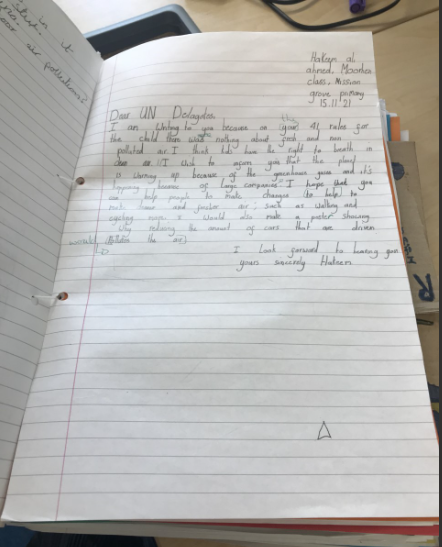 Stuck in it
air pollution?
Hatem al
ahmed, Moorhen
class, Mission
grove primary
15.11.21
Dear UN Delagates
I am writing to you because on (your) 41 rules for
the child there was nothing about fresh and non
polluted air. I think kids have the right to breath in
clean air. I wish to inform you that the planet
is warming up because of the greenhouse gases and it's
happening because of large companies. I hope that you
can help people to make changes (to help) to
and fresher air, such as walking and
cycling more. I would also make a poster showing
why reducing the amount of cars that are driven
would (the air)
I look forward to hearing you
yours sincerely Hatem